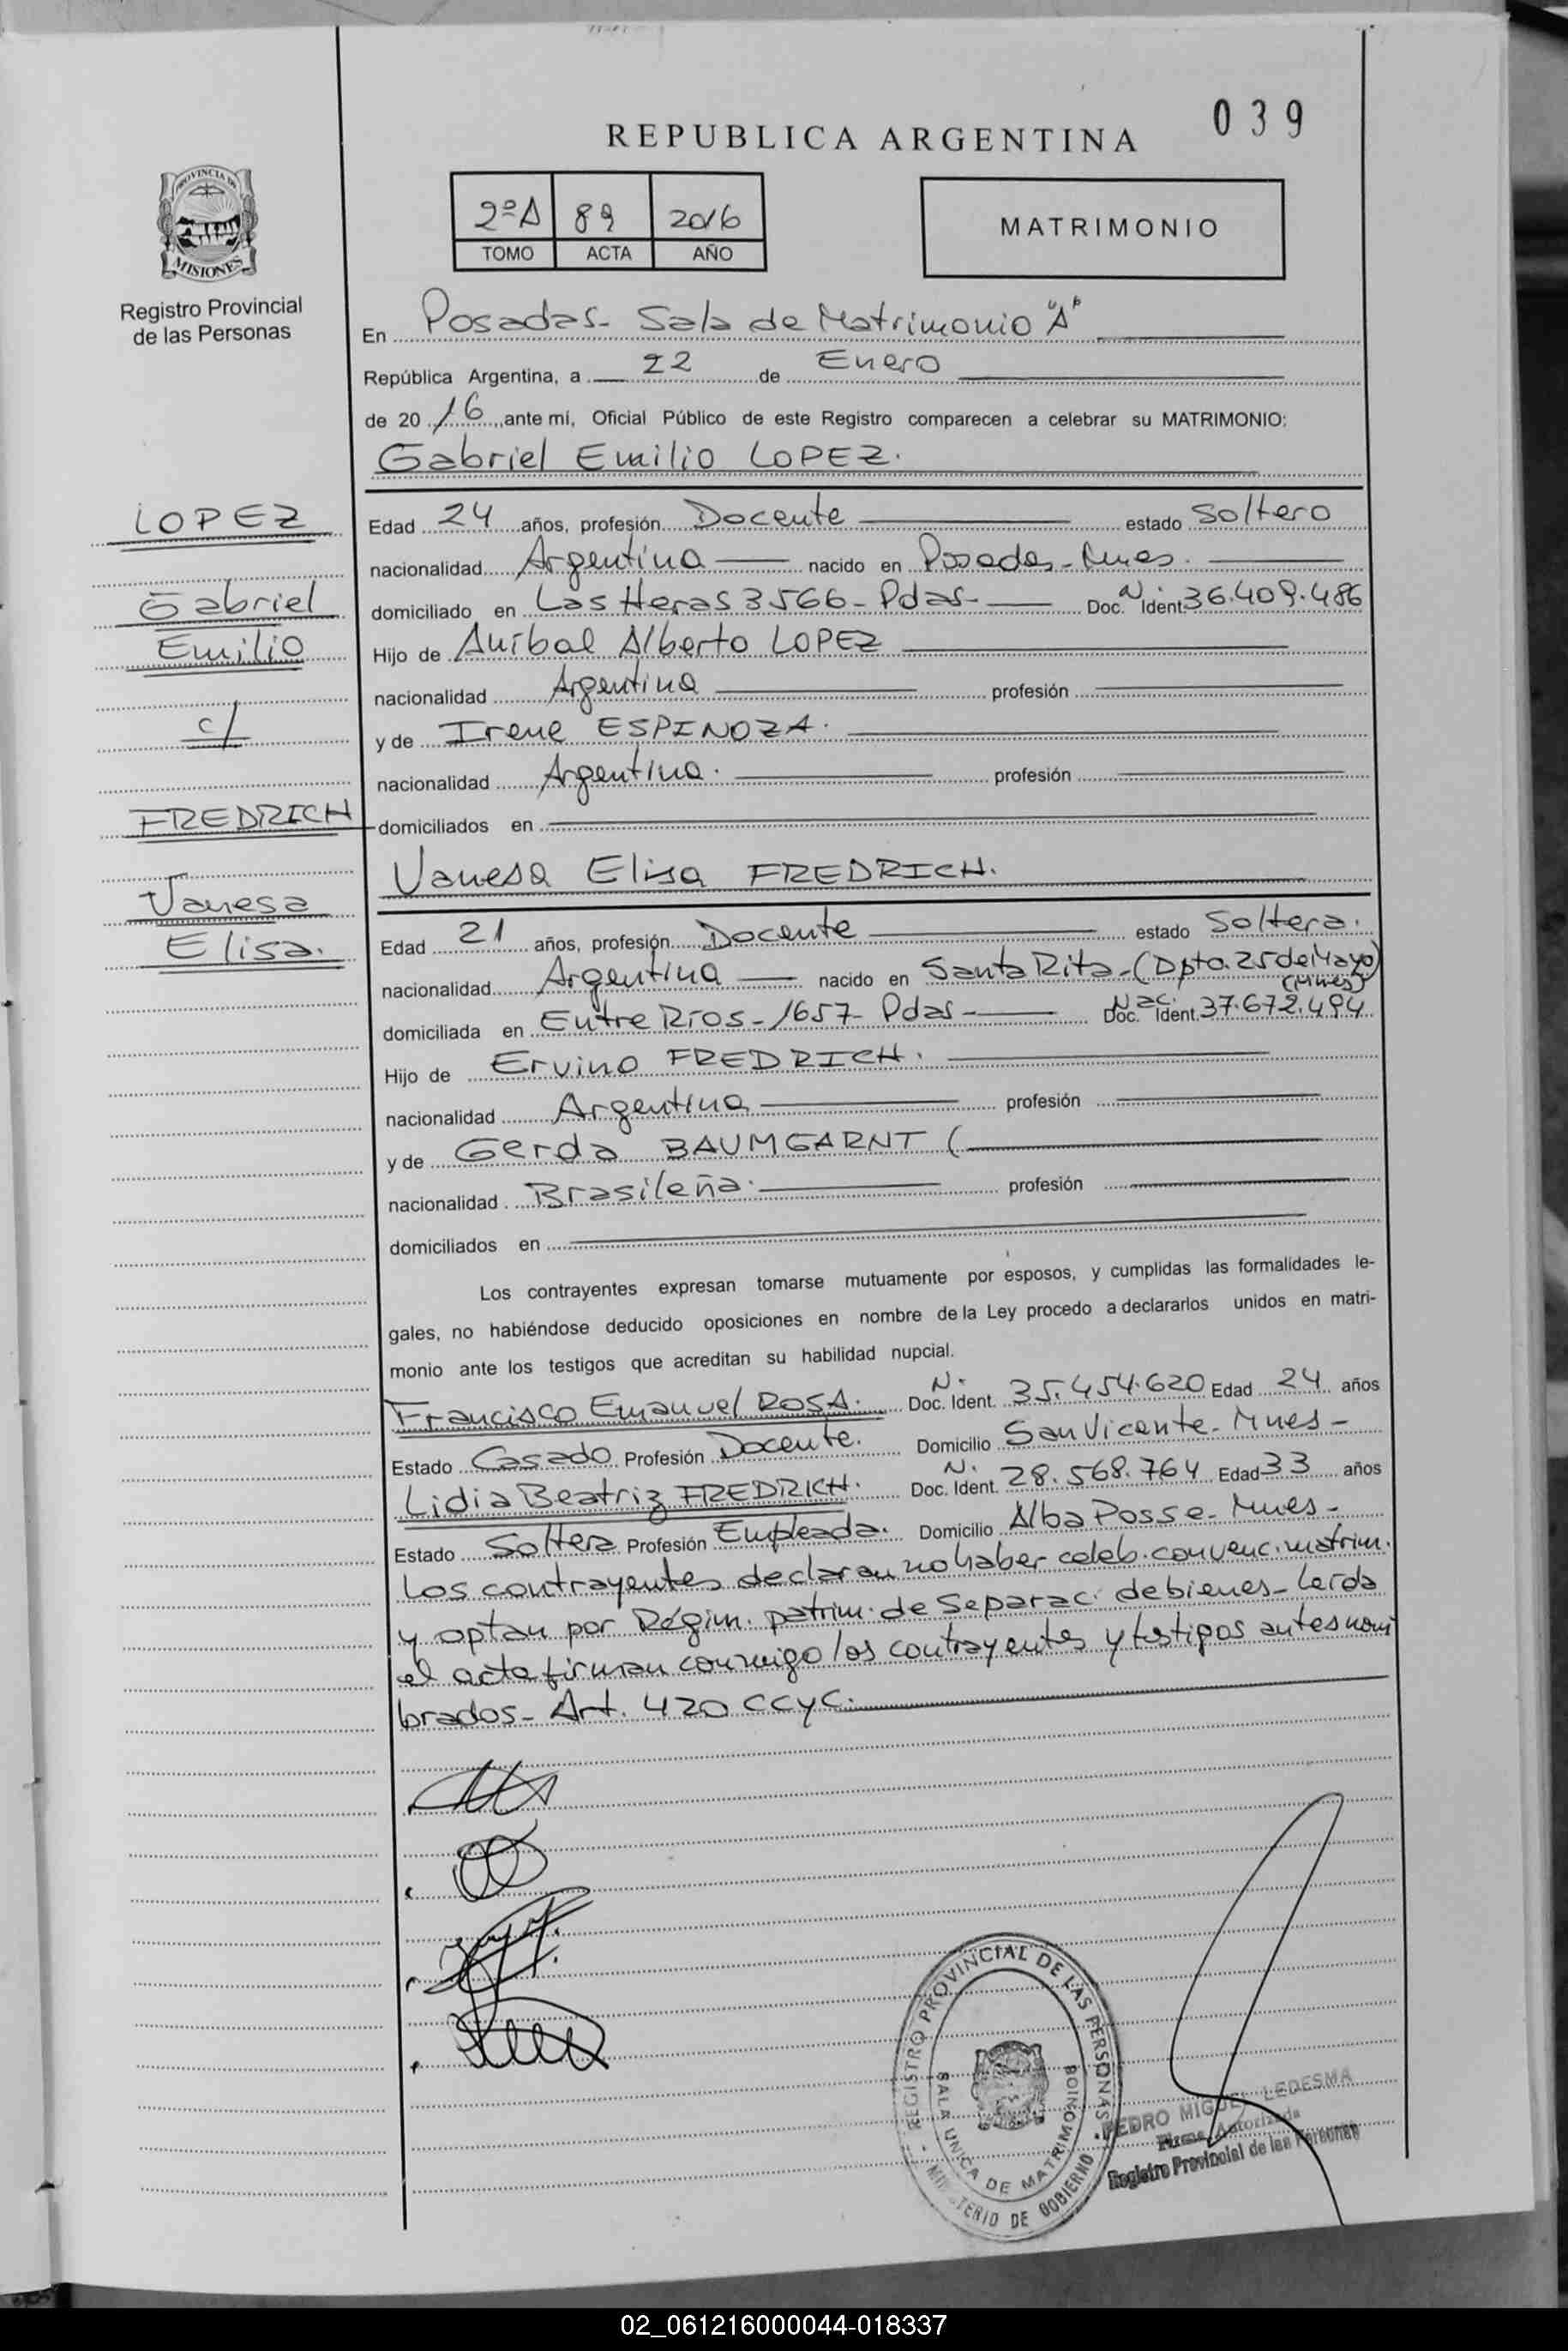 039
REPUBLICA ARGENTINA
2ºA 89 2016
TOMO ACTA AÑO
MATRIMONIO
PROVINCIA DE
MISIONES
Registro Provincial
de las Personas
En Posadas- Sala de Matrimonio "A"
República Argentina, a 22 de Enero
de 2016 ante mí, Oficial Público de este Registro comparecen a celebrar su MATRIMONIO:
Gabriel Emilio LOPEZ.
LOPEZ
Gabriel
Emilio
c/
FREDRICH
Vanesa
Elisa.
Edad 24 años, profesión Docente estado Soltero
nacionalidad Argentina nacido en Posadas-Mnes.
domiciliado en Las Heras 3566- Pdas- Doc. N Ident. 36.409.486
Hijo de Aníbal Alberto LOPEZ
nacionalidad Argentina profesión
y de Irene ESPINOZA.
nacionalidad Argentina. profesión
domiciliados en
Vanesa Elisa FREDRICH.
Edad 21 años, profesión Docente estado Soltera.
nacionalidad Argentina nacido en Santa Rita-(Dpto. 25 de Mayo)
(Mnes)
domiciliada en Entre Ríos-1657- Pdas- Doc. Nac. Ident. 37.672.494
Hijo de Ervino FREDRICH.
nacionalidad Argentina profesión
y de Gerda BAUMGARNT (
nacionalidad Brasileña. profesión
domiciliados en
Los contrayentes expresan tomarse mutuamente por esposos, y cumplidas las formalidades le-
gales, no habiéndose deducido oposiciones en nombre de la Ley procedo a declararlos unidos en matri-
monio ante los testigos que acreditan su habilidad nupcial.
Francisco Emanuel ROSA. Doc. N. Ident. 35.454.620 Edad 24 años
Estado Casado Profesión Docente. Domicilio San Vicente- Mnes-
Lidia Beatriz FREDRICH. Doc. N. Ident. 28.568.764 Edad 33 años
Estado Soltera Profesión Empleada. Domicilio Alba Posse- Mnes-
Los contrayentes declaran no haber celeb. convenc. matrim.
y optan por Régim. patrim. de Separac. de bienes- Leída
el acta firman conmigo los contrayentes y testigos antes nom
brados- Art. 420 CCyC.
REGISTRO PROVINCIAL DE LAS PERSONAS
SALA UNICA DE MATRIMONIOS
MINISTERIO DE GOBIERNO
PEDRO MIGUEL LEDESMA
Firma Autorizada
Registro Provincial de las Personas
02_061216000044-018337